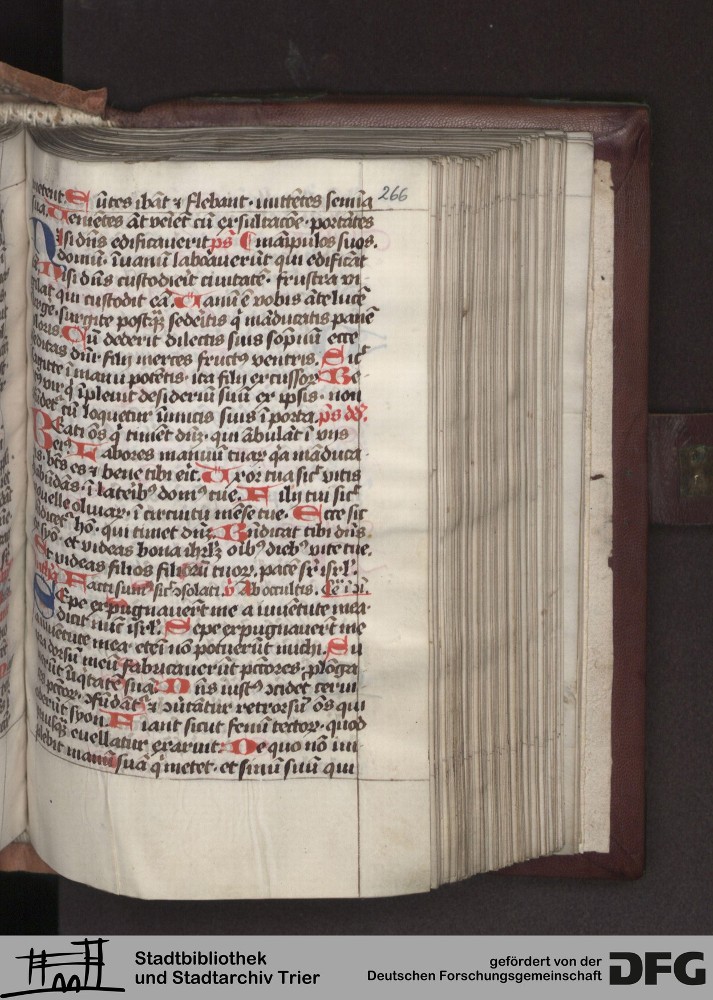 metent. Eūtes ibāt ⁊ flebant · mittētes semīa
sua. Veniētes āt veniēt cū exultacōe · portātes
Nisi dn̄s edificauerit p̄s manipulos suos.
domū · ī vanū laboauerūt qui edificāt
eā. Nisi dn̄s custodierit ciuitatē · frustra vi-
gilat qui custodit eā. Vanū ē vobis āte lucē
surge · surgite postq̄ꝫ sederitis q̄ māducatis panē
doloris. Cū dederit dilectis suis sopnū ecce
heditas dn̄i filij merces fructꝰ ventris. Sic̄
sagitte ī manu potētis · ita filij excussoꝝ. Be-
atꝰ vir q̄ īpleuit desideriū suū ex ipsis · non
cū loquetur īmicis suis ī porta. p̄s dd̄.
Beati ōs q̄ timēt dn̄ꝫ · qui ābulāt ī viis
eiꝰ. Labores manuū tuaꝝ q̄a māduca-
bis · bt̄s es ⁊ bene tibi erit. Vxor tua sic̄ vitis
habūdās · ī lateribꝰ domꝰ tue. Filij tui sic̄
nouelle oliuaꝝ · ī circuitu mēse tue. Ecce sic
bn̄dicet̄ hō · qui timet dn̄ꝫ. Bn̄dicat tibi dn̄s
ex syō · et videas bona ihrlꝫ oībꝰ diebꝰ vite tue.
Et videas filios filioꝝ tuoꝝ · pacē sr̄ isrl̄.
Facti sumꝰ sic̄ ↄsolati. v̄ Ab occultis.
Sepe expugnauerūt me a iuuētute mea
dicat nūc isrl̄. Sepe expugnauerūt me
a iuuētute mea · eteī nō potuerūt michi. Su-
pra dorsū meū fabricauerūt pctōres · ꝓlōga-
uerūt īiqtatē suā. Dn̄s iustꝰ ↄcidet cerui-
ces pctōꝝ · ↄfūdāt̄ ⁊ ↄūtātur retrorsū ōs qui
oderūt syon. Fiant sicut fenū tectoꝝ · quod
priusq̄ꝫ euellatur exaruit. De quo nō im-
plebit manū suā q̄ metet · et sinū suū qui
266
Stadtbibliothek
und Stadtarchiv Trier
gefördert von der
Deutschen Forschungsgemeinschaft
DFG